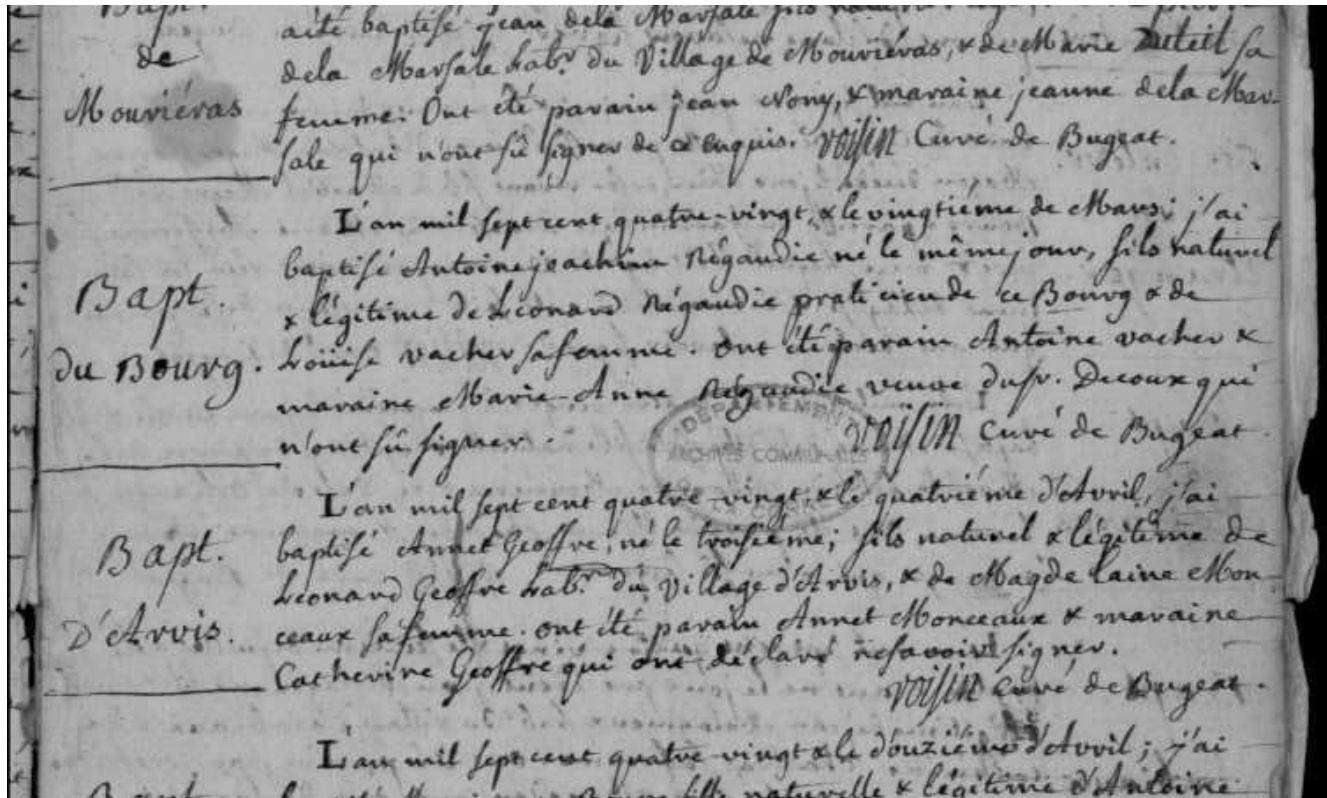 Bapt.
de
Mouviéras
a été baptisé jean dela Marsale fils
dela Marsale Labr. du Village de Mouviéras, & de Marie Duteil sa
femme: Ont été parain jean Nony, & maraine jeanne dela Mar-
sale qui n'ont sû signer de ce enquis. Voisin Curé de Bugeat.
Bapt.
du Bourg.
L'an mil sept cent quatre-vingt, & le vingtiéme de Mars; j'ai
baptisé Antoine joachim Régaudie né le même jour, fils naturel
& légitime de Léonard Régaudie praticien de ce Bourg & de
Loüise vacher sa femme. Ont été parain Antoine vacher &
maraine Marie-Anne Régaudie, veuve du sr. Decoux qui
n'ont sû signer. Voisin Curé de Bugeat.
DÉPARTEMENT
ARCHIVES COMMUNALES
Bapt.
D'Arvis.
L'an mil sept cent quatre-vingt, & le quatriéme d'Avril, j'ai
baptisé Annet Geoffre, né le troisieme; fils naturel & légitime de
Léonard Geoffre Labr. du Village d'Arvis, & de Magdelaine Mon
ceaux sa femme. Ont été parain Annet Monceaux & maraine
Catherine Geoffre qui ont déclaré ne savoir signer.
Voisin Curé de Bugeat.
L'an mil sept cent quatre-vingt & le douziéme d'Avril; j'ai
Bapt
fille naturelle & légitime d'Antoine